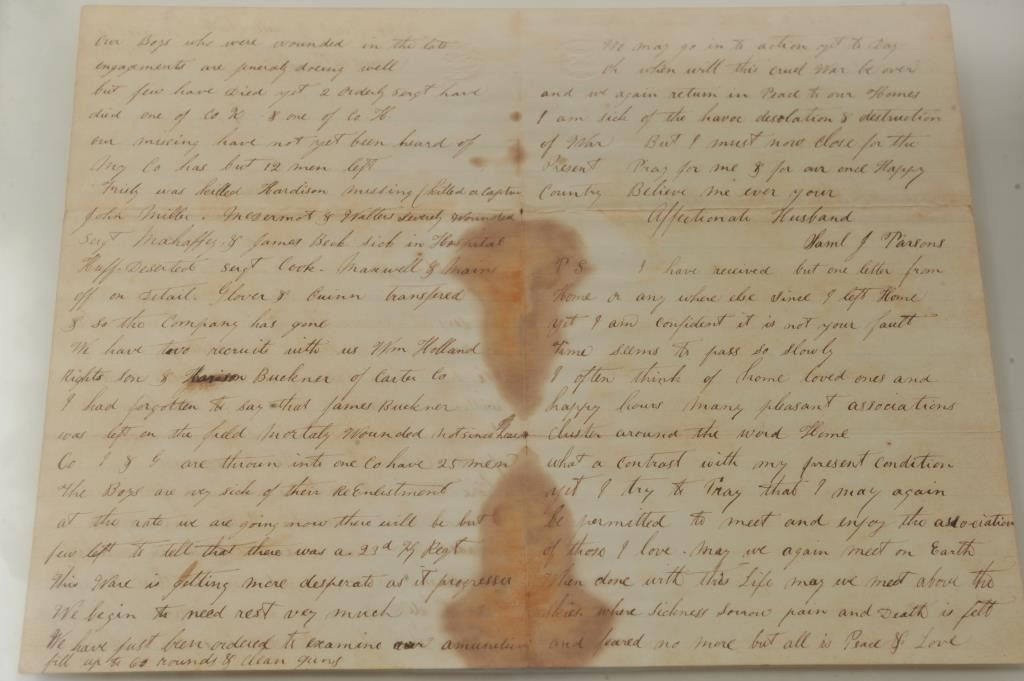 Our Boys who were wounded in the late
engagements are generaly doeing well
but few have died yet 2 orderly sergt have
died one of Co K & one of Co H.
our missing have not yet been heard of
My Co has but 12 men left
was killed Hardison missing (killed or Captur
John Miller. & Walters severly wounded
Sergt Mahaffey & James Beck sick in Hospital
Huff. Deserted Sergt Cook. Maxwell & Mains
off on detail. Glover & Quinn transfered
& so the Company has gone
We have two recruits with us Wm Holland
Rights son & Buckner of Carter Co
I had forgotten to say that James Buckner
was left on the field Mortaly Wounded not since heard
Co I & G are thrown into one Co have 25 men
The Boys are vey sick of their ReEnlistment
at the rate we are going now there will be but
few left to tell that there was a 23d Ky Regt
This Ware is getting more desperate as it progresses
We begin to need rest vey much
We have just been ordered to examine our amunition
fill up to 60 rounds & clean guns
We may go in to action yet to day
Oh when will this cruel War be over
and we again return in Peace to our Homes
I am sick of the havoc desolation & destruction
of War But I must now close for the
Present Pray for me & for our once Happy
Country Believe me ever your
Affectionate Husband
Saml J Parsons
P S I have received but one letter from
Home or any where else since I left Home
yet I am confident it is not your fault
Time seems to pass so slowly
I often think of home loved ones and
happy hours many pleasant associations
cluster around the word Home
what a contrast with my present condition
yet I try to Pray that I may again
be permitted to meet and enjoy the association
of those I love. May we again meet on Earth
When done with this Life may we meet above the
skies where sickness sorrow pain and Death is felt
and feared no more but all is Peace & Love